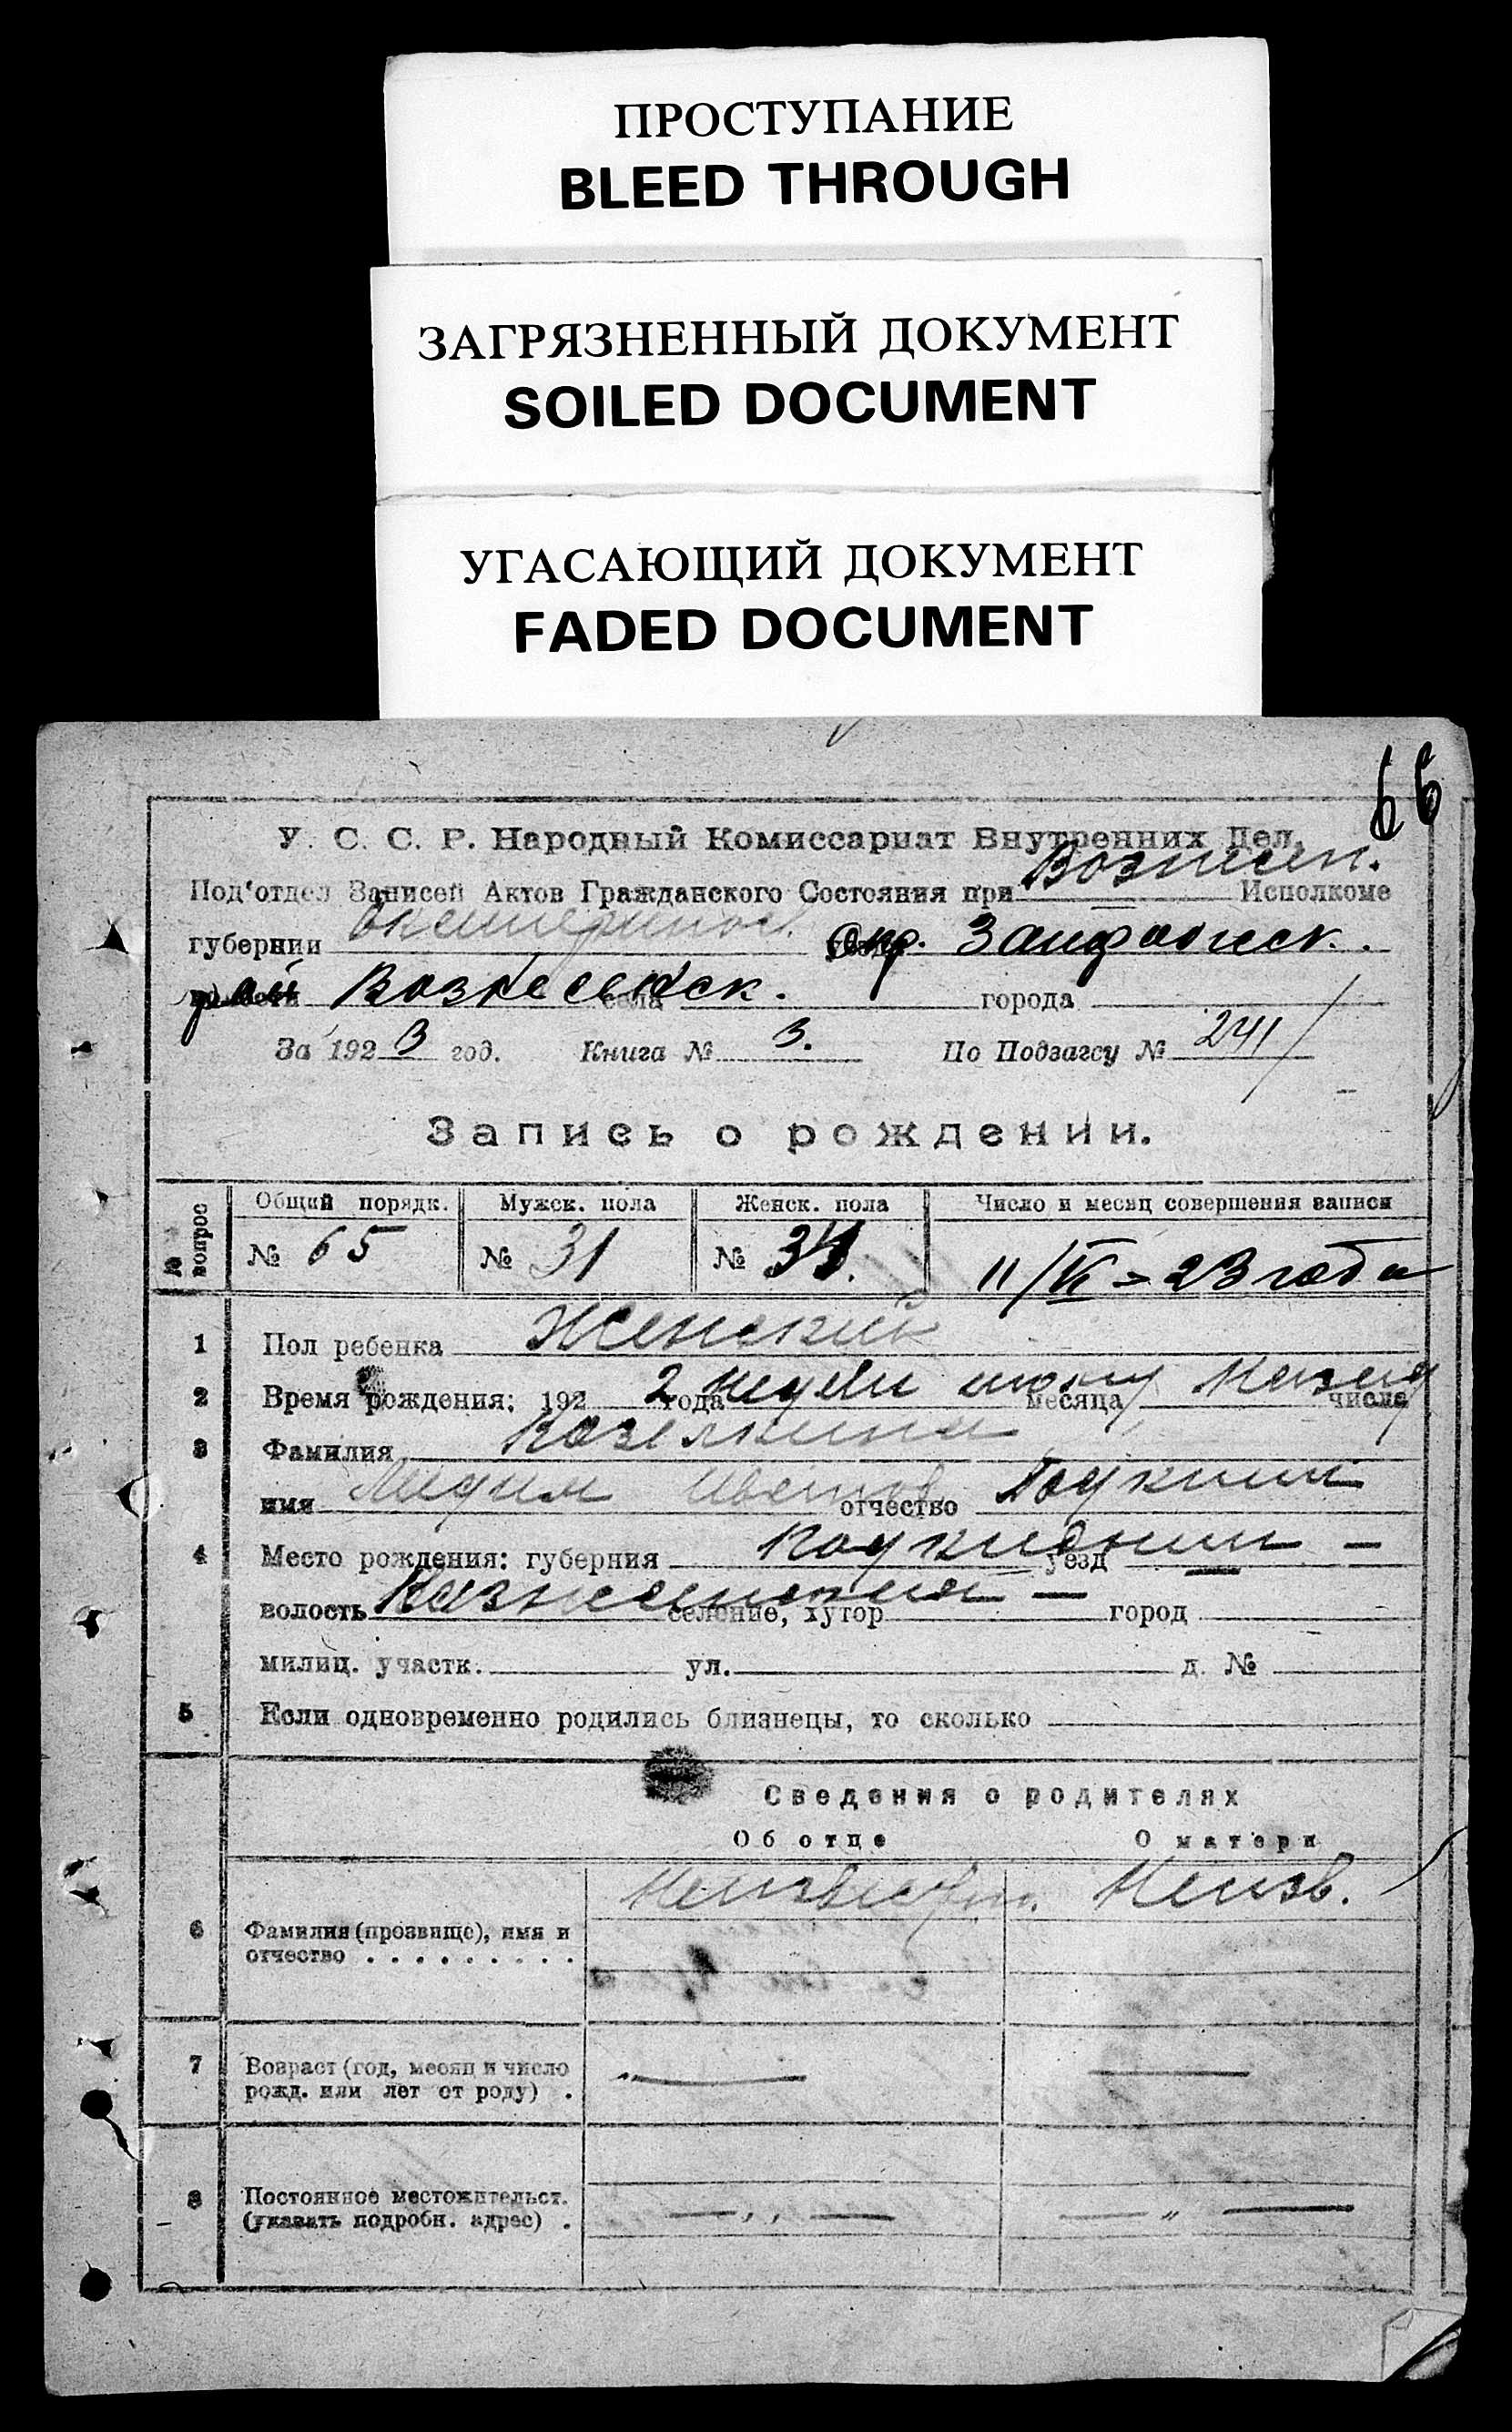 ПРОСТУПАНИЕ
BLEED THROUGH
ЗАГРЯЗНЕННЫЙ ДОКУМЕНТ
SOILED DOCUMENT
УГАСАЮЩИЙ ДОКУМЕНТ
FADED DOCUMENT
66
У. С. С. Р. Народный Комиссариат Внутренних Дел.
Под'отдел Записей Актов Гражданского Состояния при Вознесен. Исполкоме
губернии Екатеринос. уезда окр. Запорожск.
волости рай Вознесенск. села города
За 1923 год. Книга № 3. По Подзагсу № 241
Запись о рождении.
№ вопрос Общий порядк. Мужск. пола Женск. пола Число и месяц совершения записи
№ 65 № 31 № 34. 11/VI - 23 года
1 Пол ребенка Женский
2 Время рождения: 192 года 2 недели тому назад месяца числа
3 Фамилия
имя Лидия отчество
4 Место рождения: губерния уезд —
волость Вознесенская — селение, хутор город
милиц. участк. ул. д. №
5 Если одновременно родились близнецы, то сколько
Сведения о родителях
Об отце О матери
Неизвестн. Неизв.
6 Фамилия (прозвище), имя и
отчество . . . . . . . . .
7 Возраст (год, месяц и число — —
рожд. или лет от роду) .
8 Постоянное местожительст.
(указать подробн. адрес) . — ,, — — " —